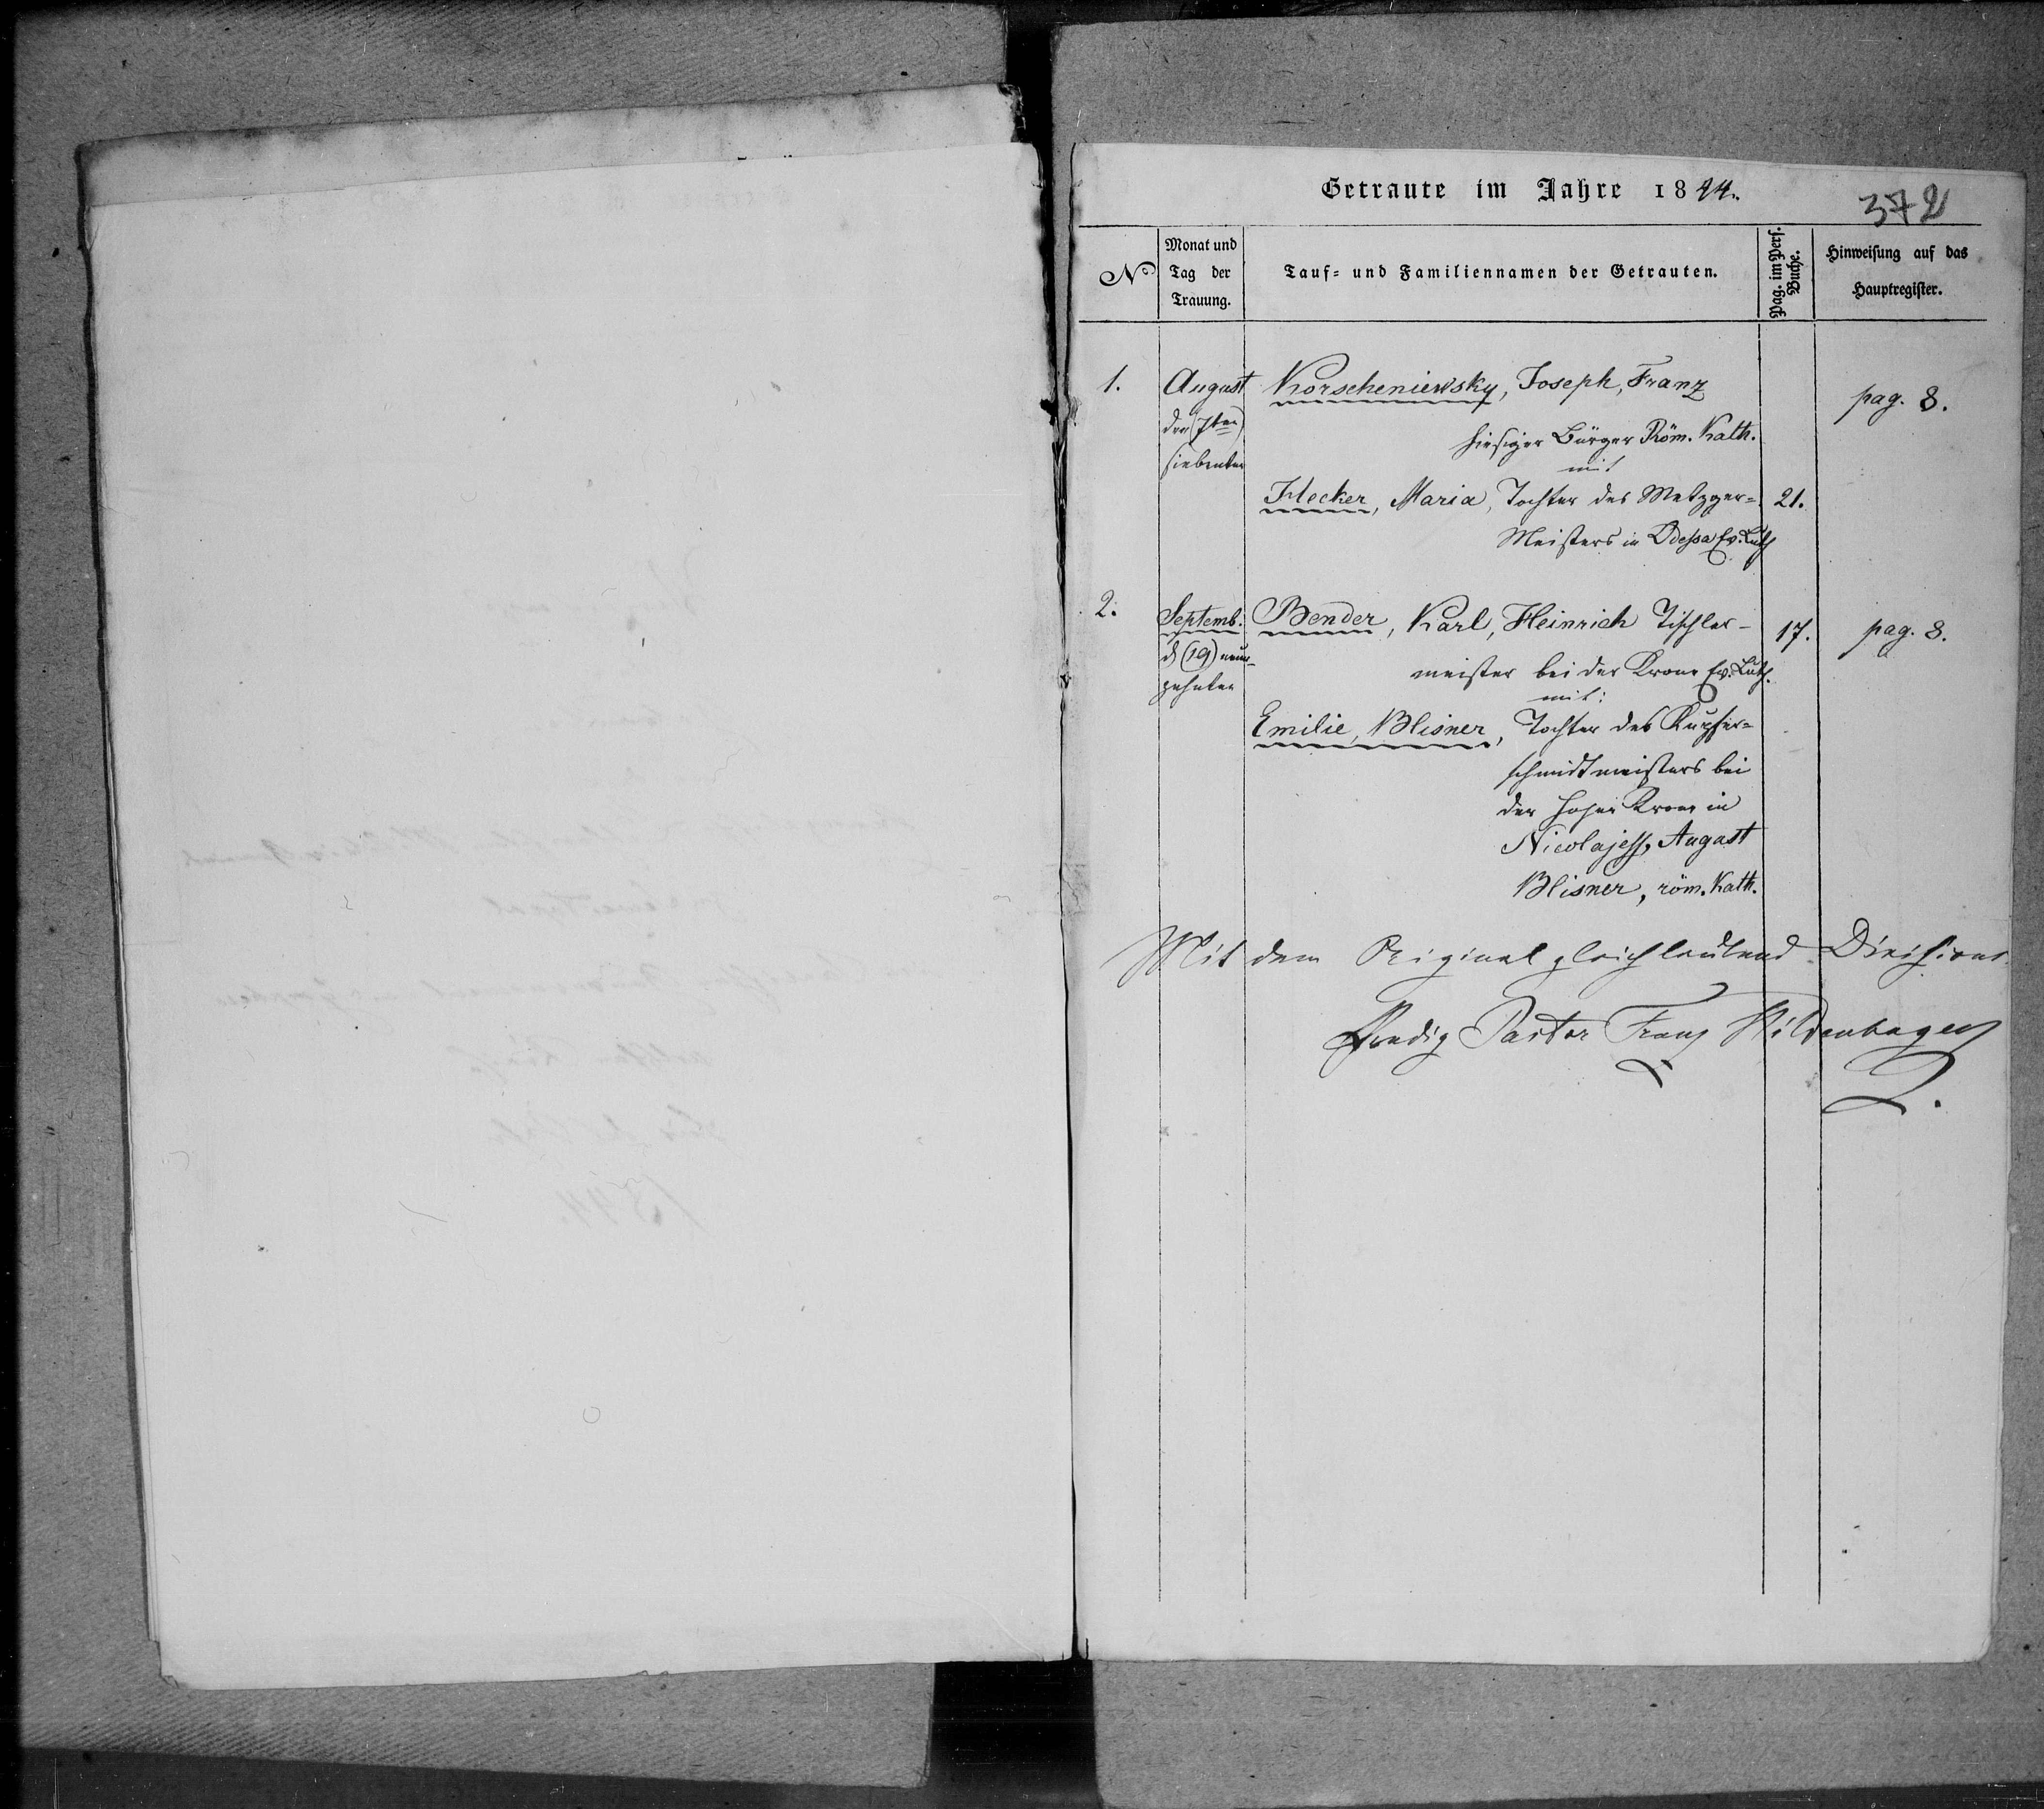 Getraute im Jahre 1844.
372
No
Monat und
Tag der
Trauung.
Tauf- und Familiennamen der Getrauten.
Pag. im Pers.
Buche.
Hinweisung auf das
Hauptregister.
1.
August
den (7ten)
siebenten
Korscheniewsky, Joseph, Franz
hiesiger Bürger Röm. Kath.
mit
Hecker, Maria, Tochter des Metzger=
Meisters in Odessa Ev. Luth
21.
pag. 8.
2.
Septemb.
d (19) neun-
zehnten
Bender, Karl, Heinrich Tischler-
meister bei der Krone Ev. Luth.
mit:
Emilie, Blisner, Tochter des Kupfer=
schmidtmeisters bei
der hohen Krone in
Nicolajeff, August
Blisner, röm. Kath.
17.
pag. 8.
Mit dem Original gleichlautend Divisions
Predig Pastor Franz Hildenhagen